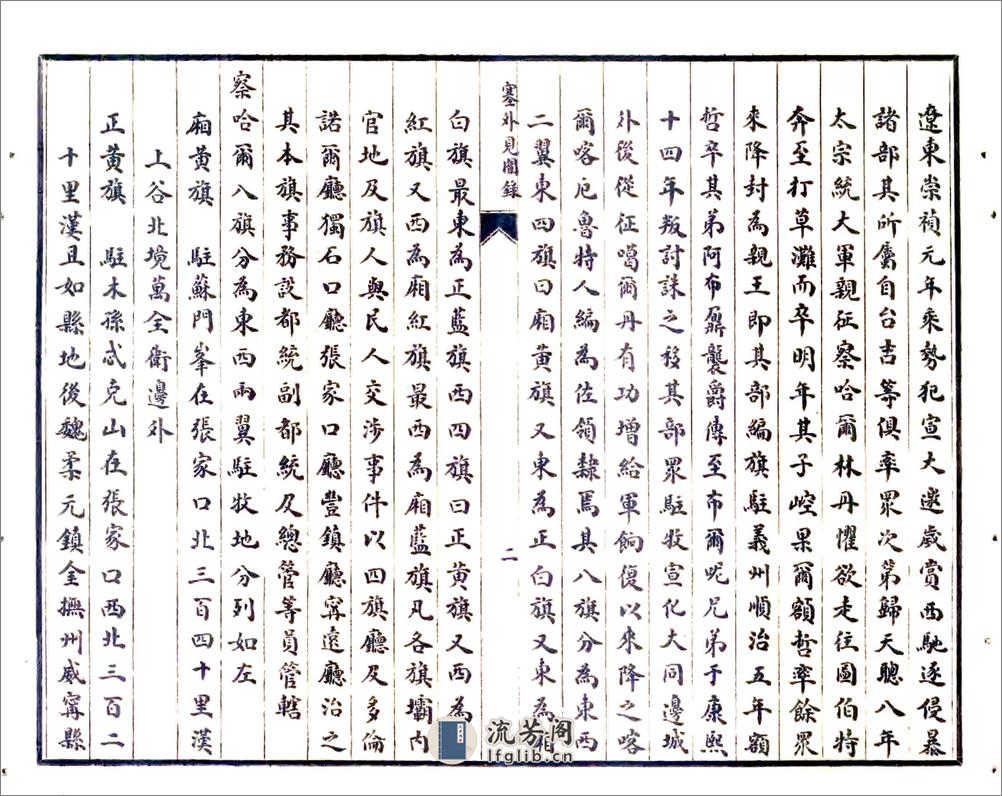 遼東崇禎元年乘勢犯宣大邀歲賞西馳逐侵暴
諸部其所屬自台吉等俱率眾次第歸天聰八年
太宗統大軍親征察哈爾林丹懼欲走往圖伯特
奔至打草灘而卒明年其子崆果爾額哲率餘眾
來降封為親王即其部編旗駐義州順治五年額
哲卒其弟阿布鼐襲爵傳至布爾呢兄弟于康熙
十四年叛討誅之移其部眾駐牧宣化大同邊城
外後從征噶爾丹有功增給軍餉復以來降之喀
爾喀厄魯特人編為佐領隸焉其八旗分為東西
二翼東四旗曰廂黃旗又東為正白旗又東為廂
塞外見聞錄
二
白旗最東為正藍旗西四旗曰正黃旗又西為
紅旗又西為廂紅旗最西為廂藍旗凡各旗壩內
官地及旗人與民人交涉事件以四旗廳及多倫
諾爾廳獨石口廳張家口廳豐鎮廳寧遠廳治之
其本旗事務設都統副都統及總管等員管轄
察哈爾八旗分為東西兩翼駐牧地分列如左
廂黃旗 駐蘇門峯在張家口北三百四十里漢
上谷北境萬全衛邊外
正黃旗 駐木孫忒克山在張家口西北三百二
十里漢且如縣地後魏柔元鎮金撫州威寧縣
流芳阁
lfglib.cn